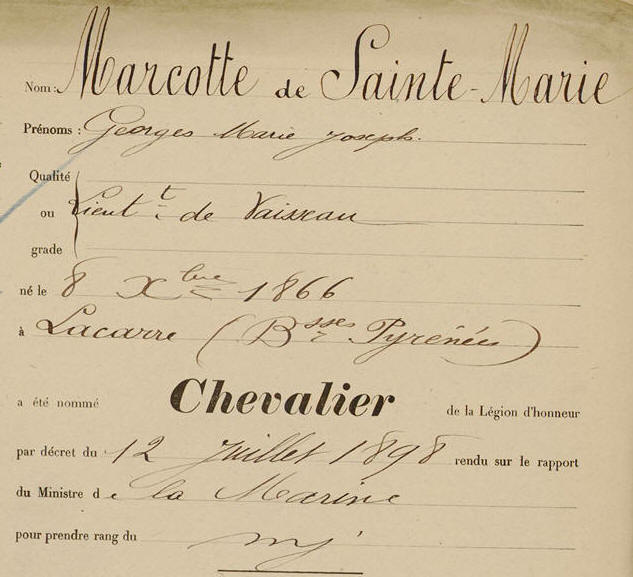 Nom: Marcotte de Sainte-Marie
Prénoms : Georges Marie Joseph.
Qualité
ou Lieut.t de Vaisseau
grade
né le 8 Xbre 1866
à Lacarre (Bsses Pyrénées)
a été nommé Chevalier de la Légion d'honneur
par décret du 12 Juillet 1898 rendu sur le rapport
du Ministre de la Marine
pour prendre rang du mj